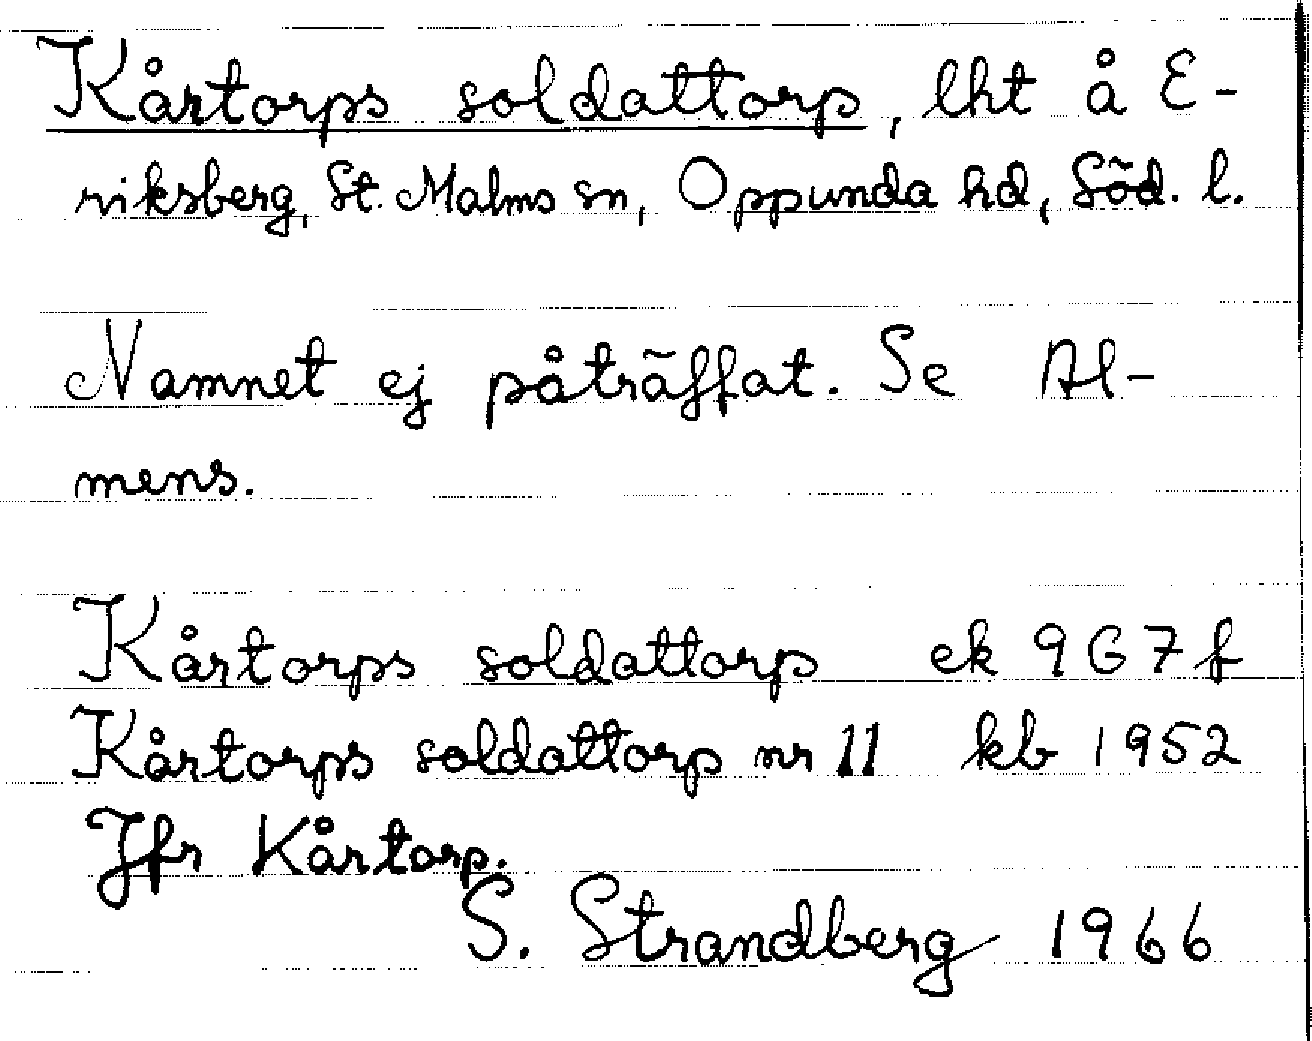 Kårtorps soldattorp, lht å E-
riksberg, St. Malms sn, Oppunda hd, Söd. l.
Namnet ej påträffat. Se Al-
mens.
Kårtorps soldattorp ek 967 f
Kårtorps soldattorp nr 11 kb 1952
Jfr Kårtorp.
S. Strandberg 1966